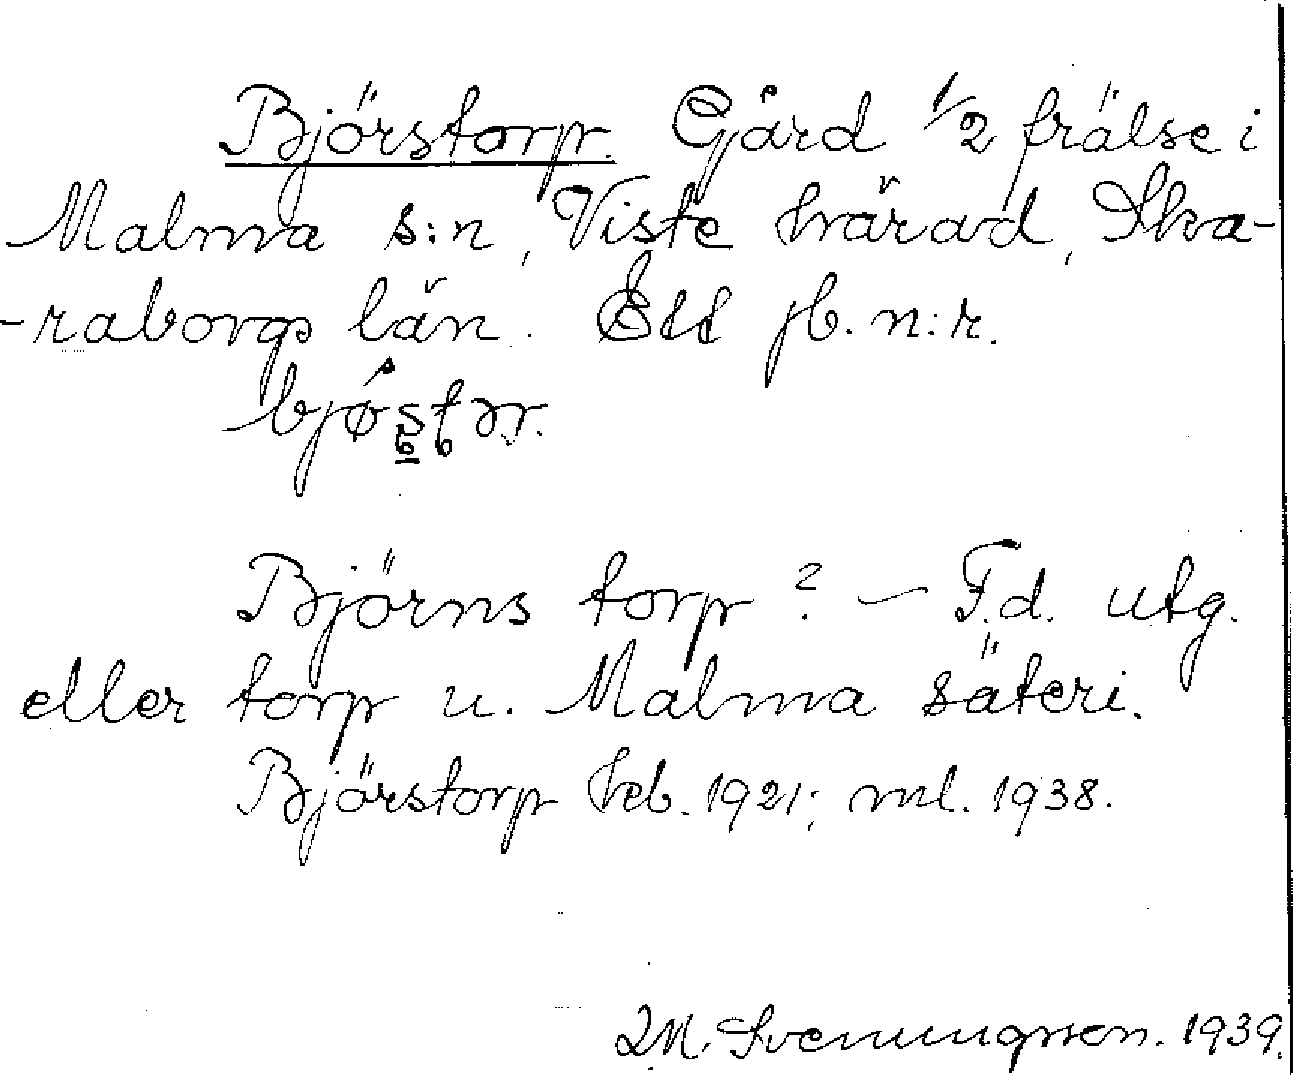 Björstorp. Gård 1/2 frälse i
Malma s:n, Viste härad, Ska-
-raborgs län. Ett jb. n:r.
Björns torp? – F.d. utg.
eller torp u. Malma säteri.
Björstorp Heb. 1921; ml. 1938.
M. Svenungsson. 1939.